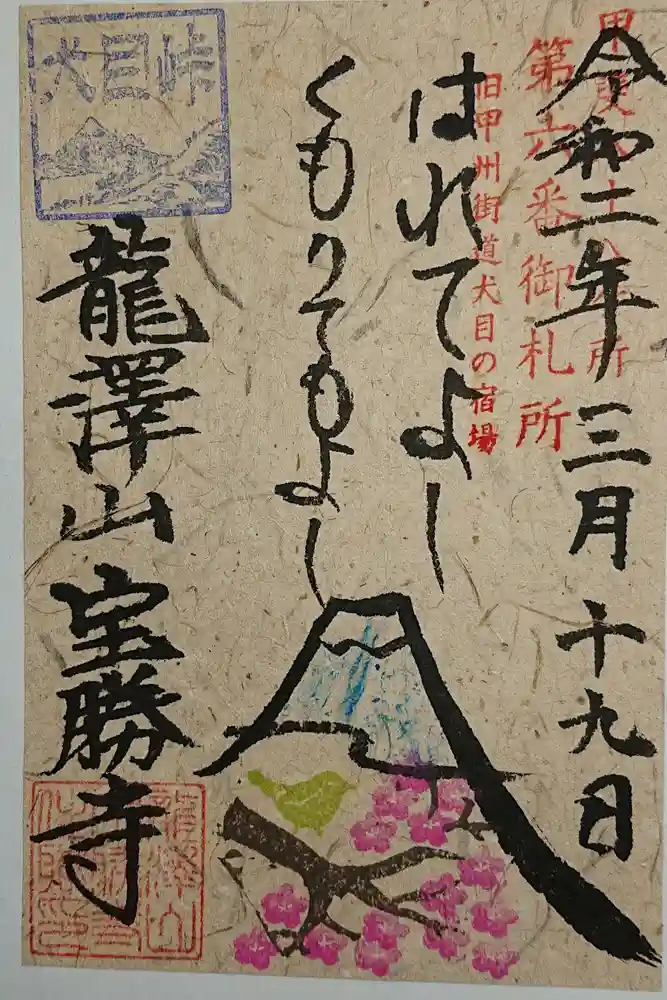 令和二年三月十九日
第六番御札所
旧甲州街道犬目の宿場
はれてよし
くもりてもよし
犬目峠
龍澤山宝勝寺